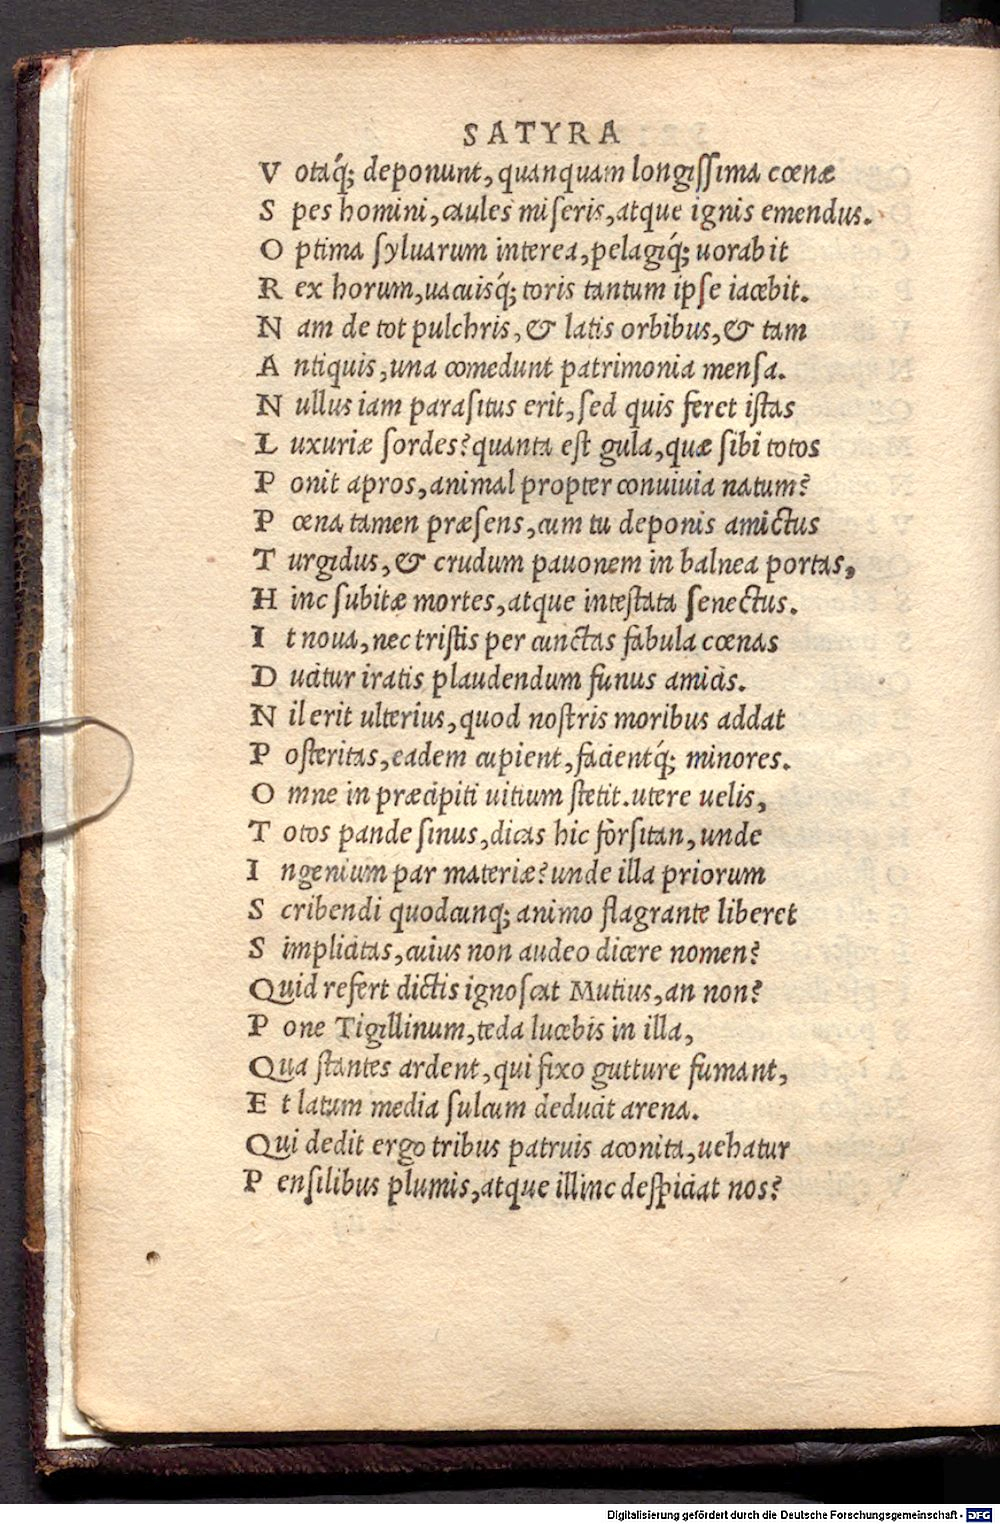 SATYRA
V otaq́; deponunt, quanquam longissima cœnæ
S pes homini, caules miseris, atque ignis emendus.
O ptima syluarum interea, pelagiq́; uorabit
R ex horum, uacuisq́; toris tantum ipse iacebit.
N am de tot pulchris, & latis orbibus, & tam
A ntiquis, una comedunt patrimonia mensa.
N ullus iam parasitus erit, sed quis feret istas
L uxuriæ sordes? quanta est gula, quæ sibi totos
P onit apros, animal propter conuiuia natum?
P œna tamen præsens, cum tu deponis amictus
T urgidus, & crudum pauonem in balnea portas,
H inc subitæ mortes, atque intestata senectus.
I t noua, nec tristis per cunctas fabula cœnas
D ucitur iratis plaudendum funus amicis.
N il erit ulterius, quod nostris moribus addat
P osteritas, eadem cupient, facientq́; minores.
O mne in præcipiti uitium stetit. utere uelis,
T otos pande sinus, dicas hic forsitan, unde
I ngenium par materiæ? unde illa priorum
S cribendi quodcunq; animo flagrante liberet
S implicitas, cuius non audeo dicere nomen?
Quid refert dictis ignoscat Mutius, an non?
P one Tigillinum, teda lucebis in illa,
Qua stantes ardent, qui fixo gutture fumant,
E t latum media sulcum deducit arena.
Qui dedit ergo tribus patruis aconita, uehatur
P ensilibus plumis, atque illinc despiciat nos?
Digitalisierung gefördert durch die Deutsche Forschungsgemeinschaft - DFG